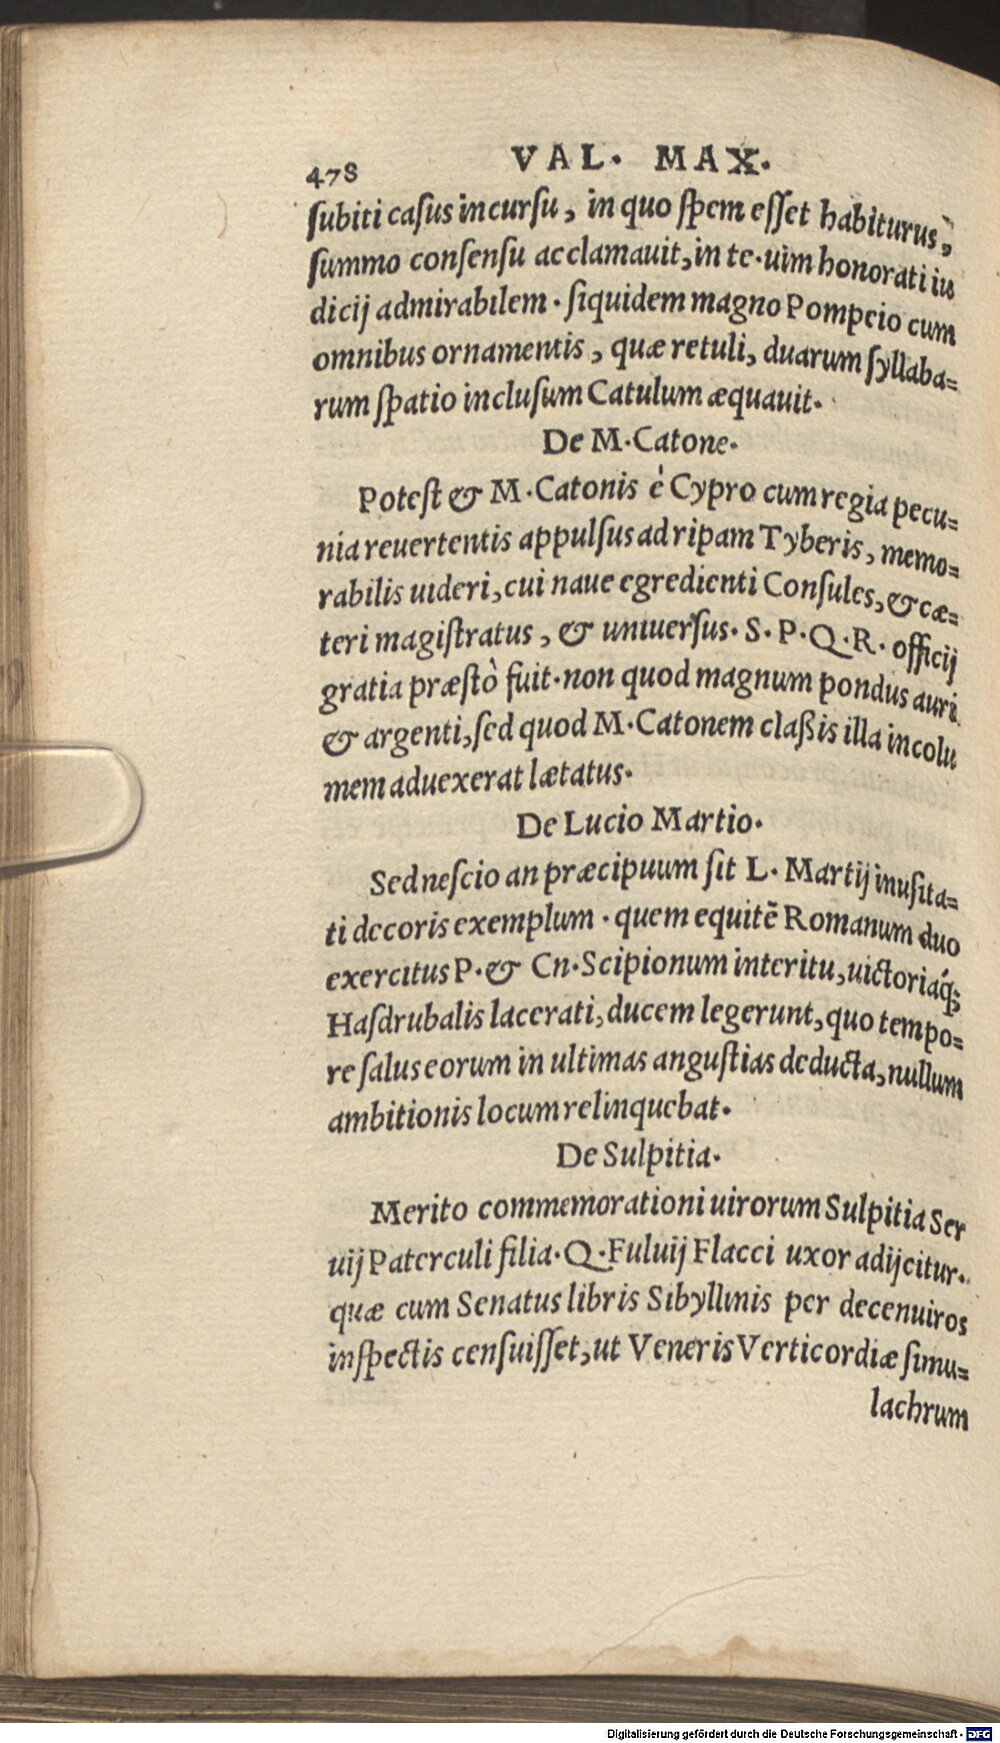 478 VAL. MAX.
ſubiti caſus incurſu, in quo ſpem eſſet habiturus,
ſummo conſenſu acclamauit, in te. uim honorati iu
dicij admirabilem. ſiquidem magno Pompeio cum
omnibus ornamentis, quæ retuli, duarum ſyllaba-
rum ſpatio incluſum Catulum æquauit.
De M. Catone.
Poteſt & M. Catonis è Cypro cum regia pecu-
nia reuertentis appulſus ad ripam Tyberis, memo-
rabilis uideri, cui naue egredienti Conſules, & cæ-
teri magiſtratus, & uniuerſus. S. P. Q. R. officij
gratia præſtò fuit. non quod magnum pondus auri
& argenti, ſed quod M. Catonem claßis illa incolu
mem aduexerat lætatus.
De Lucio Martio.
Sed neſcio an præcipuum ſit L. Martij inuſita-
ti decoris exemplum. quem equitē Romanum duo
exercitus P. & Cn. Scipionum interitu, uictoriaq́;
Haſdrubalis lacerati, ducem legerunt, quo tempo-
re ſalus eorum in ultimas anguſtias deducta, nullum
ambitionis locum relinquebat.
De Sulpitia.
Merito commemorationi uirorum Sulpitia Ser
uij Paterculi filia. Q. Fuluij Flacci uxor adijcitur.
quæ cum Senatus libris Sibyllinis per decenuiros
inſpectis cenſuiſſet, ut Veneris Verticordiæ ſimu-
lachrum
Digitalisierung gefördert durch die Deutsche Forschungsgemeinschaft - DFG